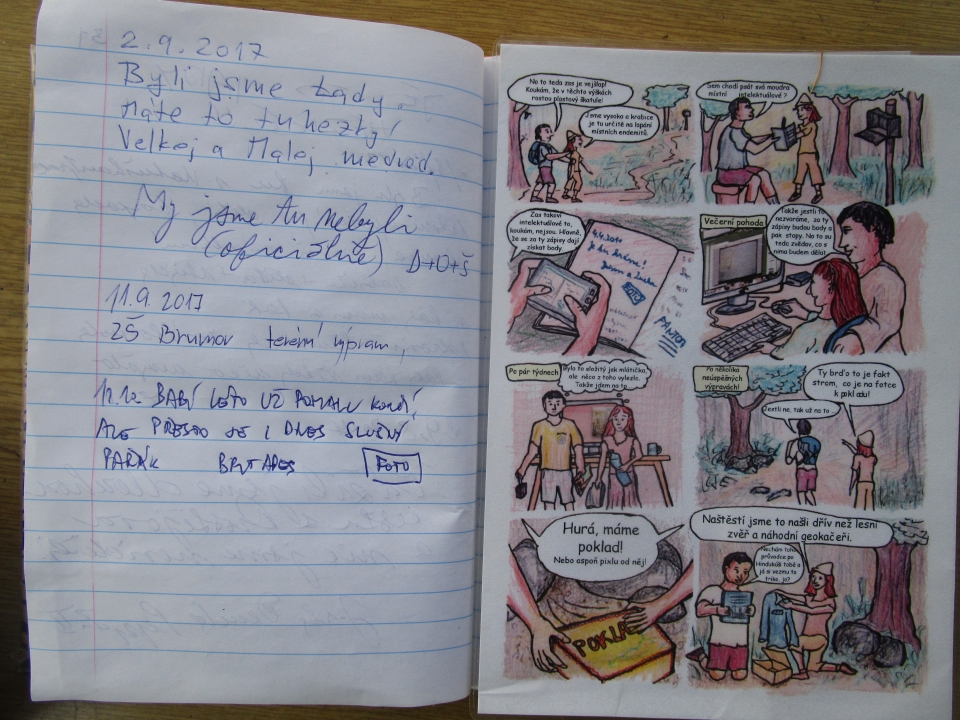 2.9.2017
Byli jsme tady.
Máte to tu hezký!
Velkej a Malej medvěd.
My jsme tu nebyli
(oficiálně) D+O+Š
11.9.2017
ZŠ Brumov terénní výprava,
BABÍ LÉTO UŽ POMALU KONČÍ,
ALE PŘESTO JE I DNES SLUŠNÝ
PAŘÁK
FOTO
No to teda zas je vejšlap!
Koukám, že v těchto výškách
rostou plastový škatule!
Jsme vysoko a krabice
je tu určitě na lapání
místních endemitů.
Sem chodí psát svá moudra
místní intelektuálové ?
Zas takoví
intelektuálové to,
koukám, nejsou. Hlavně,
že se za ty zápisy dají
získat body.
4.4.2011
Večerní pohoda
Takže jestli to
nezvoráme, za ty
zápisy budou body a
pak stopy. No to su
teda zvědav, co s
nima budem dělat
Po pár týdnech
Bylo to složitý jak mlátička,
ale něco z toho vylezlo.
Takže jdem na to
Po několika
neúspěšných
výpravách!
Jestli ne, tak už na to
Ty brďo to je fakt
strom, co je na fotce
k pokladu!
Hurá, máme
poklad!
Nebo aspoň pixlu od něj!
POKLAD
Naštěstí jsme to našli dřív než lesní
zvěř a náhodní geokačeři.
Nechám toho
průvodce po
Hindukúši tobě a
já si vezmu to
triko, jo?